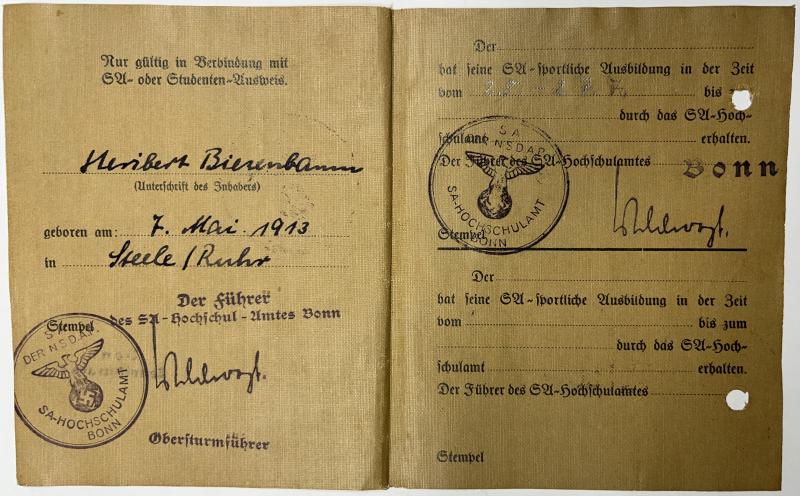 Nur gültig in Verbindung mit
SA-oder Studenten-Ausweis.
Heribert Biesenbaum
(Unterschrift des Inhabers)
geboren am: 7. Mai 1913
in Steele/Ruhr
Der Führer
des SA-Hochschul-Amtes Bonn
Stempel
SA
DER N.S.D.A.P.
SA-HOCHSCHULAMT
BONN
Obersturmführer
Der
hat seine SA-sportliche Ausbildung in der Zeit
vom bis
durch das SA-Hoch-
schulamt erhalten.
Der Führer des SA-Hochschulamtes Bonn
SA
DER N.S.D.A.P.
SA-HOCHSCHULAMT
BONN
Stempel
Der
hat seine SA-sportliche Ausbildung in der Zeit
vom bis zum
durch das SA-Hoch-
schulamt erhalten.
Der Führer des SA-Hochschulamtes
Stempel